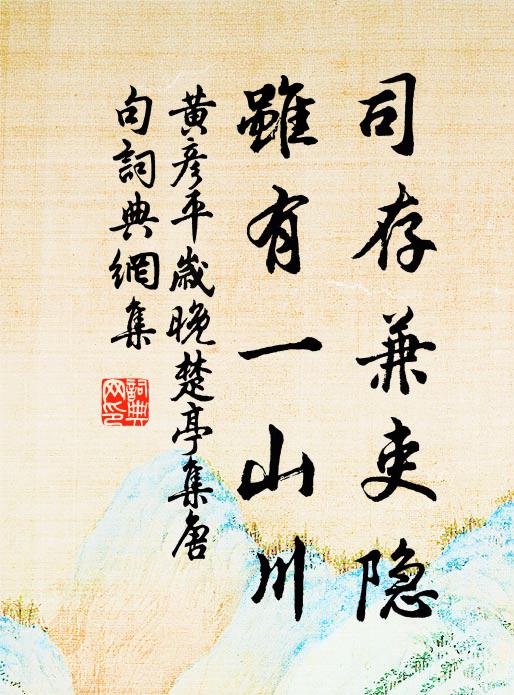 司存兼吏隐
雖有一山川
黃彥平歲晚楚亭集唐
句詞典網集
詞典
网印